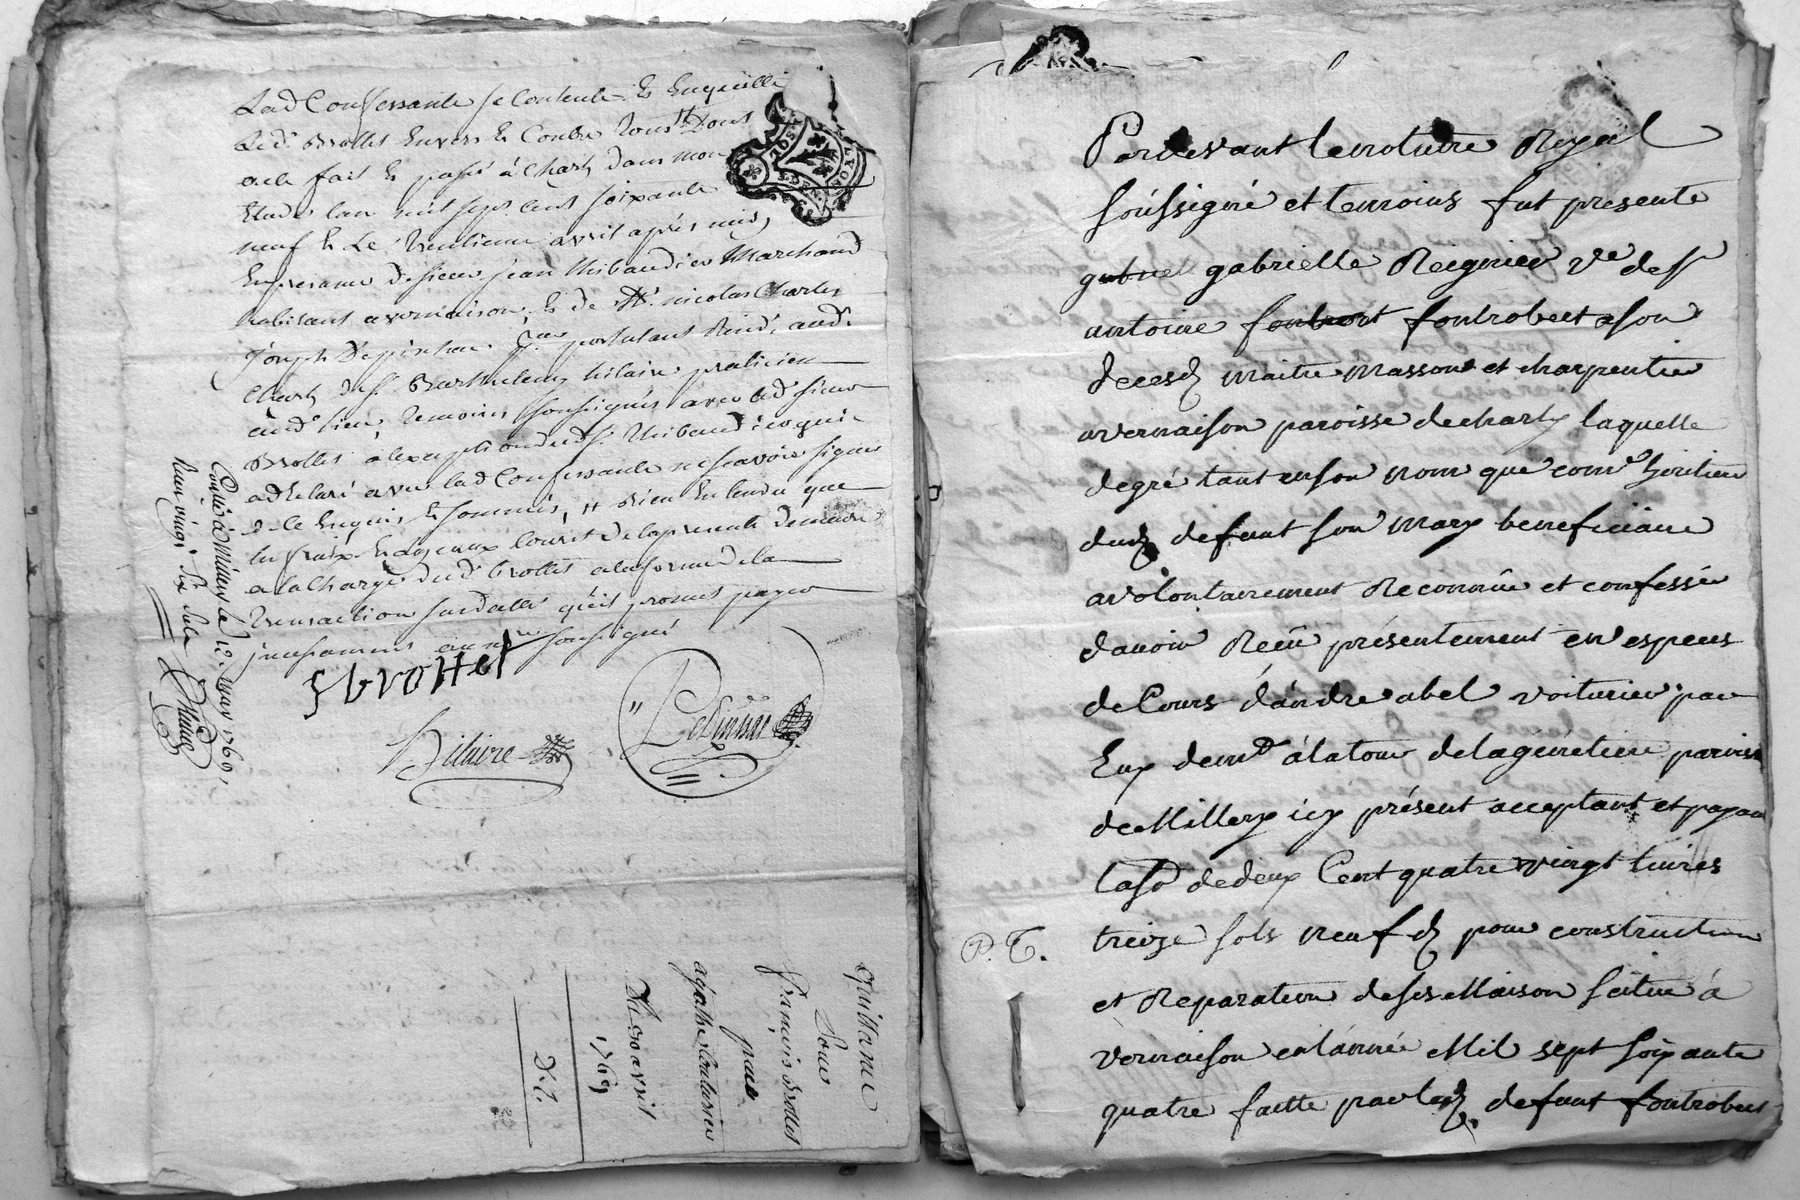 Lad Confessante se Contente & Enquitte
led. Brottet Envers & Contre tous Dont
acte fait & passé à Charly dans mon
Etude l'an mil sept cent soixante
neuf & Le trentieme avril après midy
En presence de sieur jean thibaudier Marchand
habitant a vernaison, & de Mr. nicolas Charles
joseph
Charly Barthelemy hilaire praticien
aud. lieu temoins soussignés avec led sieur
Brottet à l'exception dud sr thibaudier qui
a declaré avec lad Confessante ne sçavoir signer
de ce Enquis & sommés, et bien Entendu que
les fraix de la presente demeurent
a la Charge dud. brottet a la forme de la
transaction sus datée qu'il promet payer
soussigné
f brottet
hilaire
Conllé à millery le 12. may 1769,
Reçu vingt six sols
quittance
Pour
François Brottet
par
agathe
Du 30 avril
1769
Pardevant le notaire Royal
soussigné et temoins fut presente
gabriell gabrielle Reignier ve. de sr
antoine fontrobert a son
decesd maitre masson et charpentier
a vernaison paroisse de charly laquelle
degré tant en son nom que come heritiere
dud defunt son mary beneficiaire
a volontairement Reconnüe et confessée
d'avoir Reçû présentement en especes
de Cours d'andre abel voiturier par
Eux demt. à la tour de la
de Millery icy présent acceptant et payant
la se de deux Cent quatre vingt livres
treize sols neuf d pour construction
P. T.
et Reparation de ses Maison scitue à
vernaison en l'année Mil sept soixante
quatre faitte par led. defunt fontrobert